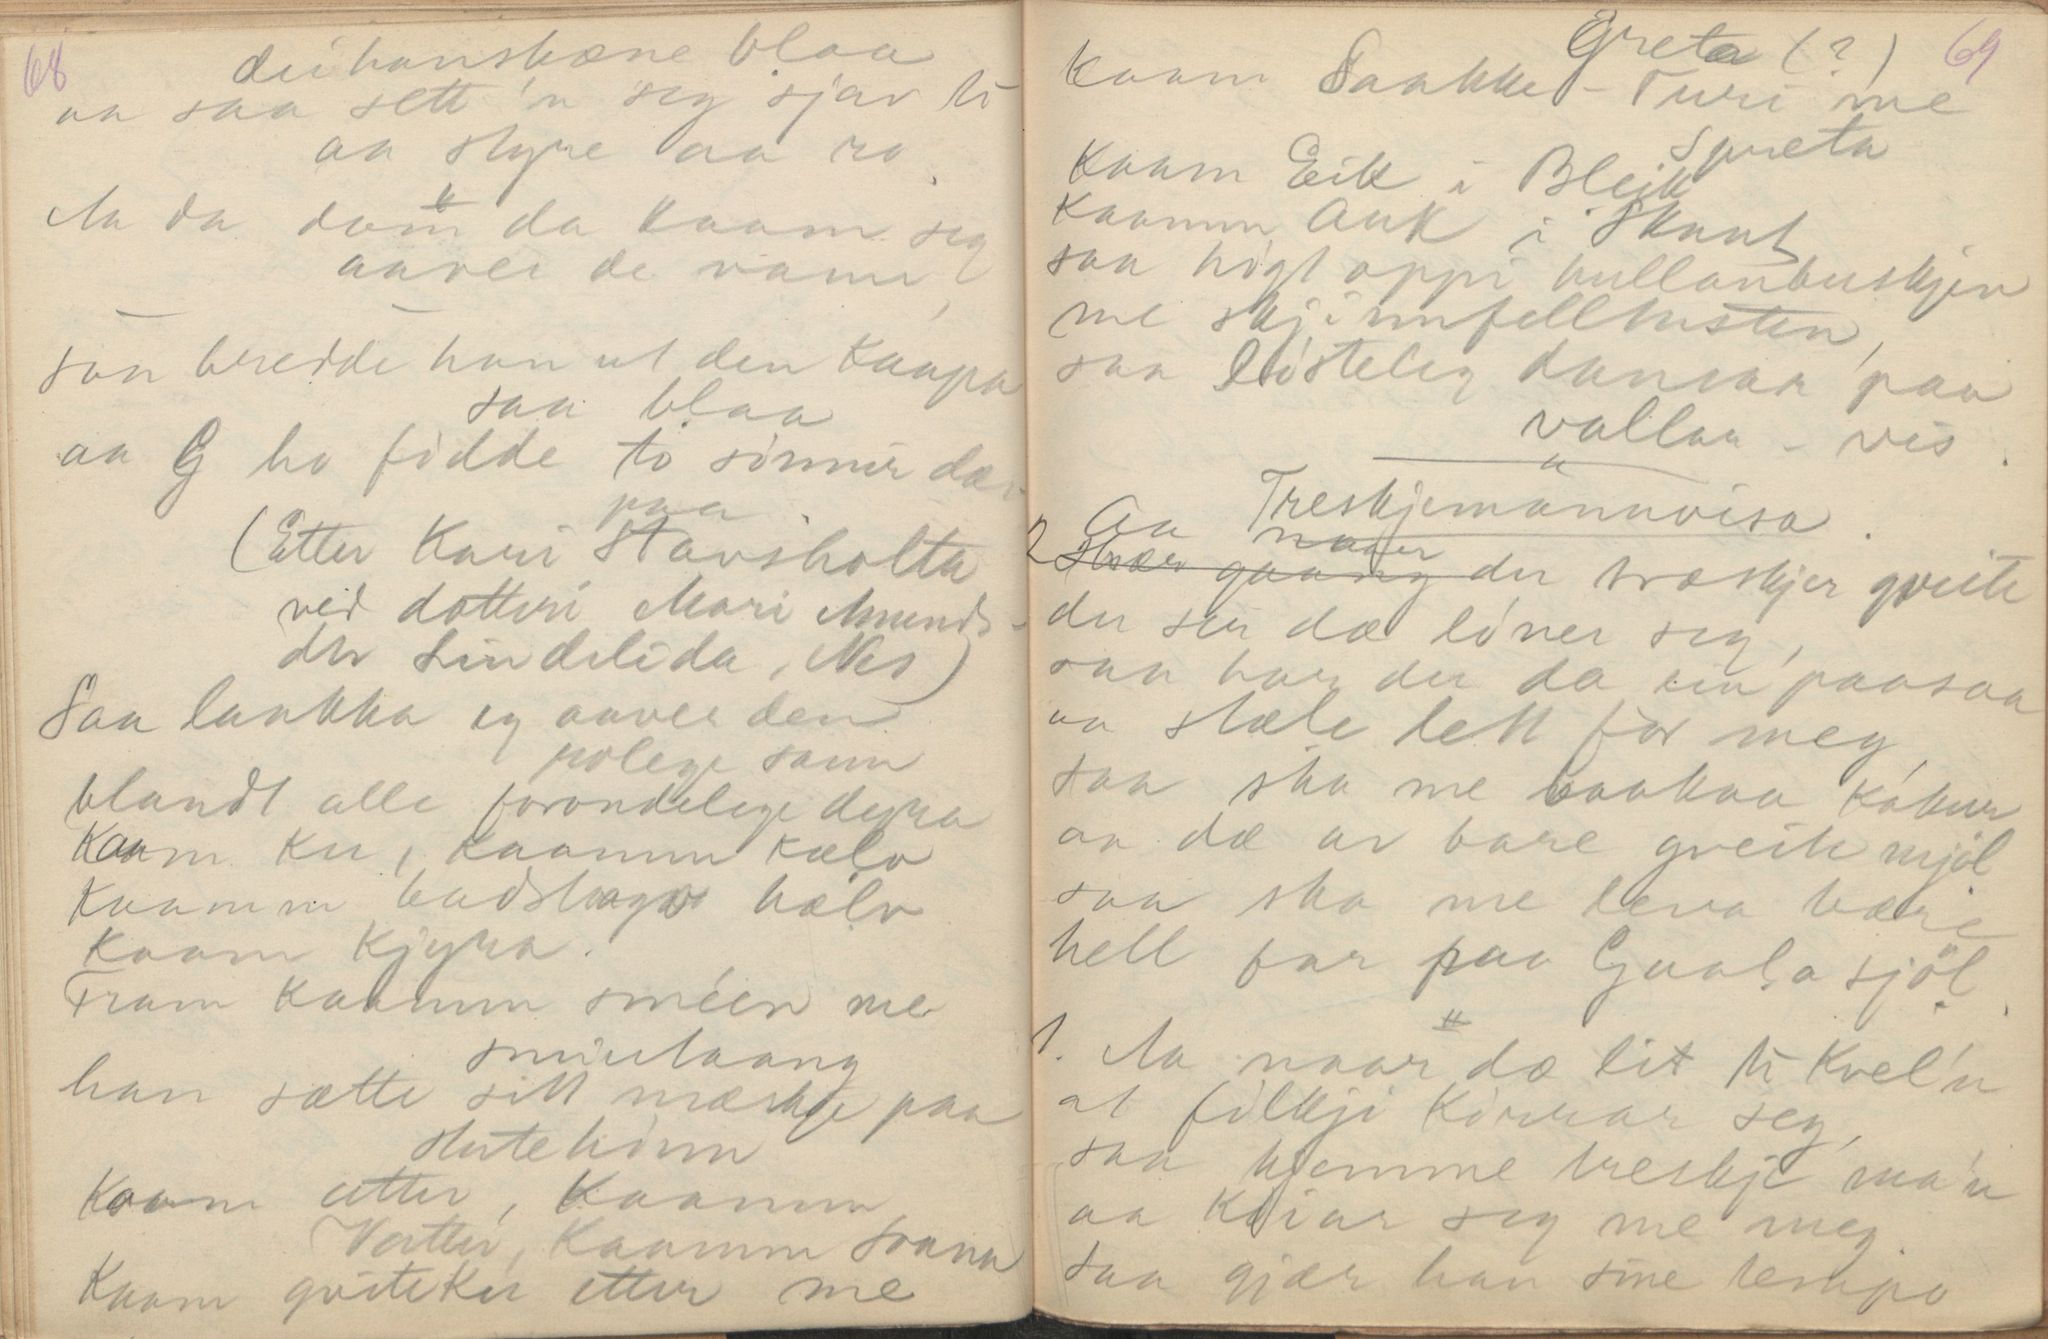 68
dei hanskæne blaa
aa saa sett 'n seg sjav ti
aa styre aa ro.
Aa da dom da kaam seg
aaver de vann,
saa bredde han ut den kaapa
saa blaa
aa G ho fødde to sønnir dær
paa.
(Etter Kari Stavsholta
ved dotteri Mari Amunds-
dtr Lindelida, Nes)
Saa laakka eg aaver den
rolege sann
blandt alle forondelege dyra
kaam ku, kaamm kælv
kaamm hælv
kaam kjyra.
Fram kaamm sméen me
smietaang
han sætte sitt mærkje paa
stutehønn
kaam etter, kaamm
Vetter, kaamm Svana
kaam qviteku etter me
69
Greta (?)
kaam Saakke-Turi me
Spreta
kaam Eik i Bleik
kaamm Auk i Skaut
saa høgt oppi hullanbuskjen
me skjinnfelltusten,
saa listeleg dansaa paa
vallaa-vis.
Treskjemannvisa.
Aa naar
2 Hvær gaang du træskjer qveite
du ser dæ løner seg,
saa har du da ein paasaa
aa stæle lett for meg,
saa ska me baakaa kakur
aa dæ av bare qveite mjøl
saa ska me leva bære
hell far paa Gaala sjøl.
1. Aa naar dæ lit ti kvel'n
at følkji kirrar seg,
saa kjemme treskje ma'n
aa kosar seg me meg.
saa gjær han sine tempo